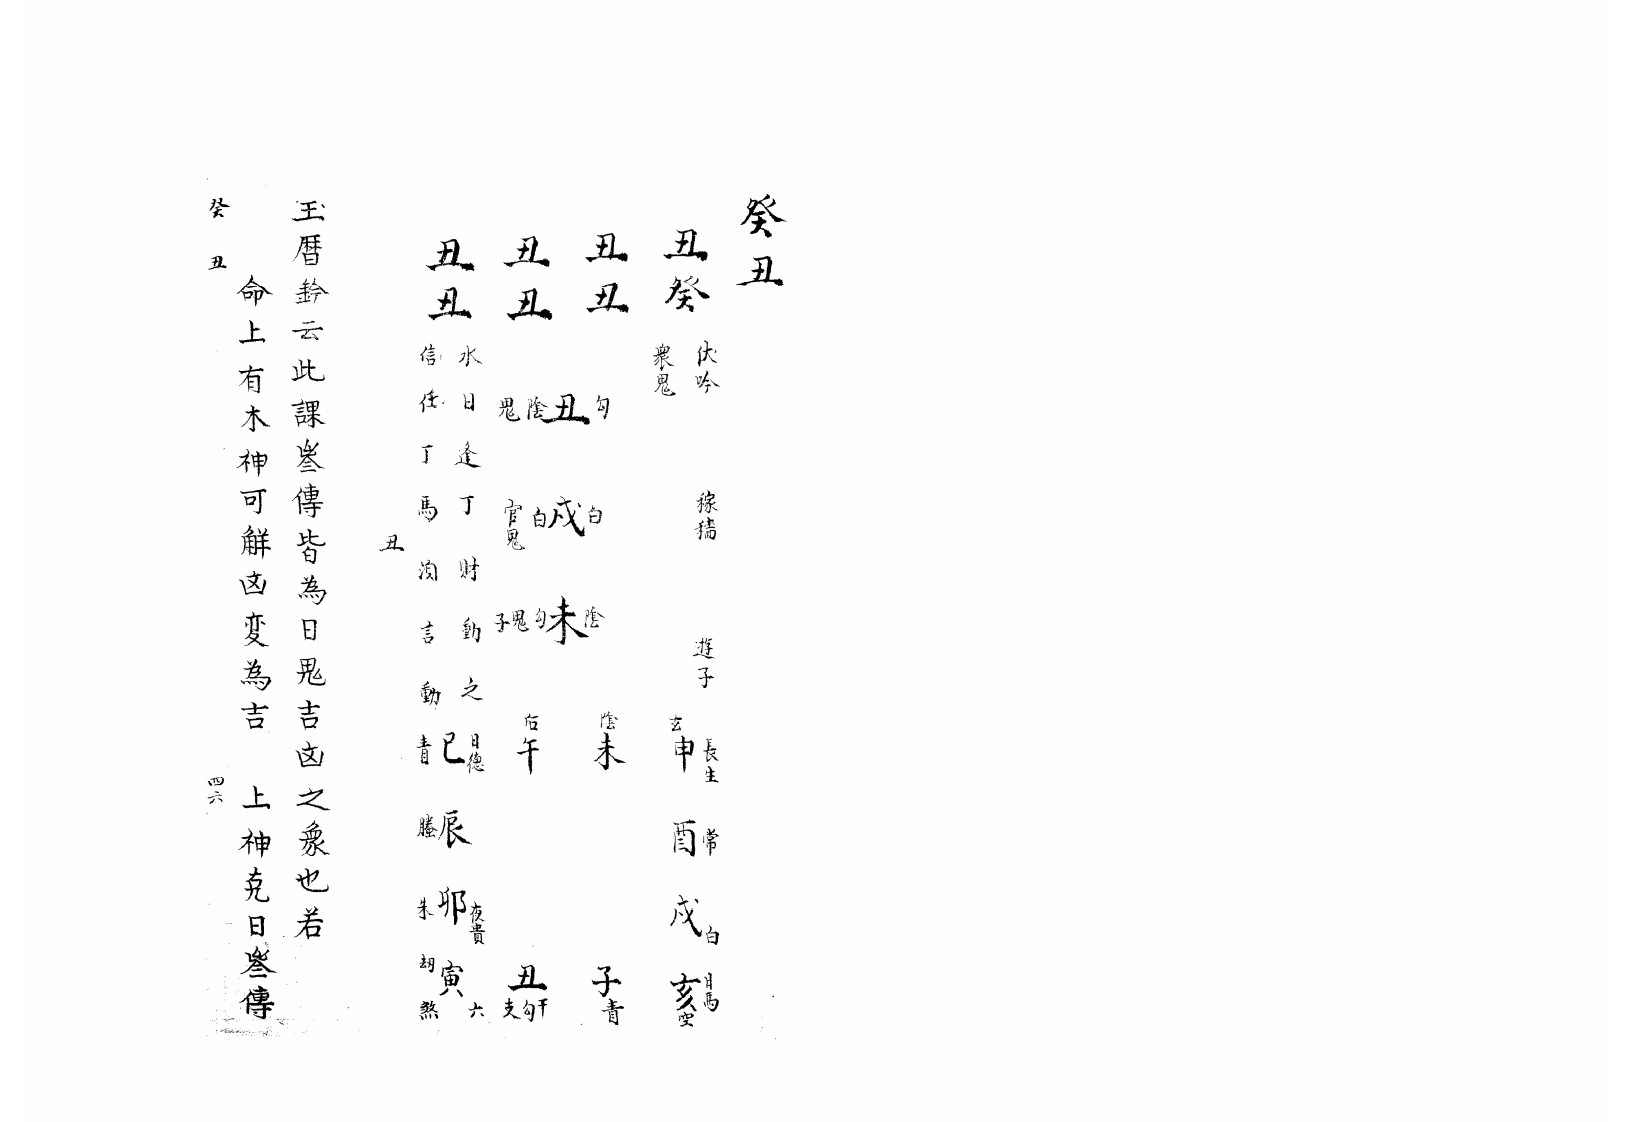 癸丑
丑 丑 丑 丑
癸 丑 丑 丑
伏吟 稼穡 遊子
衆鬼
勾 丑 陰 鬼
白 戌 白 官鬼
陰 未 勾 鬼 子
水日逢丁財動之
信任丁馬須言動
玄 申 長生
陰 未
后 午
日德 巳 青
常 酉
辰 螣
白 戌
夜貴 卯 朱
日馬 亥 空
子 青
丑 干 勾 支
六 寅 劫煞
丑
玉曆鈐云此課叁傳皆為日鬼吉凶之象也若
命上有木神可解凶変為吉 上神克日叁傳
癸丑 四六